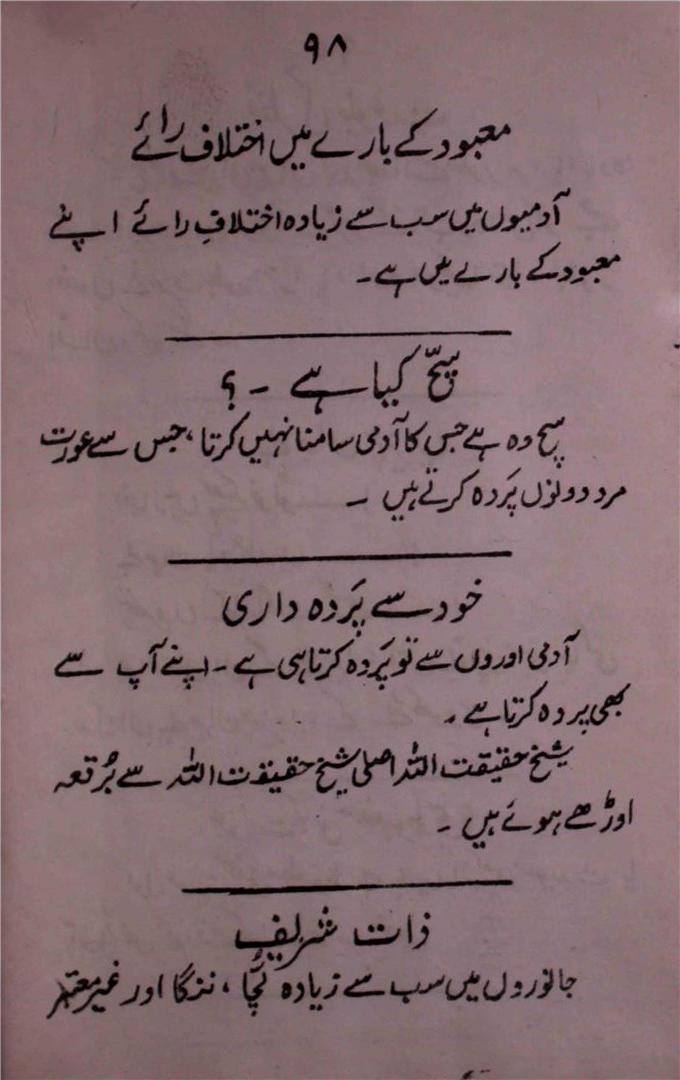 ۹۸
معبود کے بارے میں اختلاف رائے
آدمیوں میں سب سے زیادہ اختلافِ رائے اپنے
معبود کے بارے میں ہے۔
سچّ کیا ہے ۔ ؟
سچ وہ ہے جس کا آدمی سامنا نہیں کرتا، جس سے عورت
مرد دونوں پَردہ کرتے ہیں ۔
خود سے پَردہ داری
آدمی اوروں سے تو پَردہ کرتا ہی ہے ۔ اپنے آپ سے
بھی پردہ کرتا ہے ۔
شیخ حقیقت اللہ اصلی شیخ حقیقت اللہ سے بُرقعہ
اوڑھے ہوئے ہیں ۔
ذات شریف
جانوروں میں سب سے زیادہ لُچّا ، ننگا اور غیر معتبر